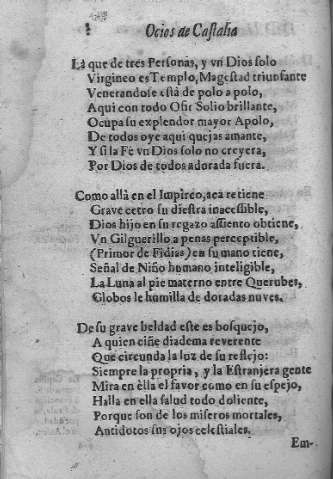 Ocios de Castalia
La que de tres Personas, y vn Dios solo
Virgineo es Templo, Magestad triunfante
Venerandose està de polo a polo,
Aqui con todo Ofir Solio brillante,
Ocupa su explendor mayor Apolo,
De todos oye aqui quejas amante,
Y si la Fè vn Dios solo no creyera,
Por Dios de todos adorada fuera.
Como allà en el Impireo, aca retiene
Grave cetro su diestra inacessible,
Dios hijo en su regazo assiento obtiene,
Vn Gilguerillo a penas perceptible,
(Primor de Fidias) en su mano tiene,
Señal de Niño humano inteligible,
La Luna al pie materno entre Querubes,
Globos le humilla de doradas nuves.
De su grave beldad este es bosquejo,
A quien ciñe diadema reverente
Que circunda la luz de su reflejo:
Siempre la propria, y la Estranjera gente
Mira en èlla el favor como en su espejo,
Halla en ella salud todo doliente,
Porque son de los miseros mortales,
Antidotos sus ojos celestiales.
Em-